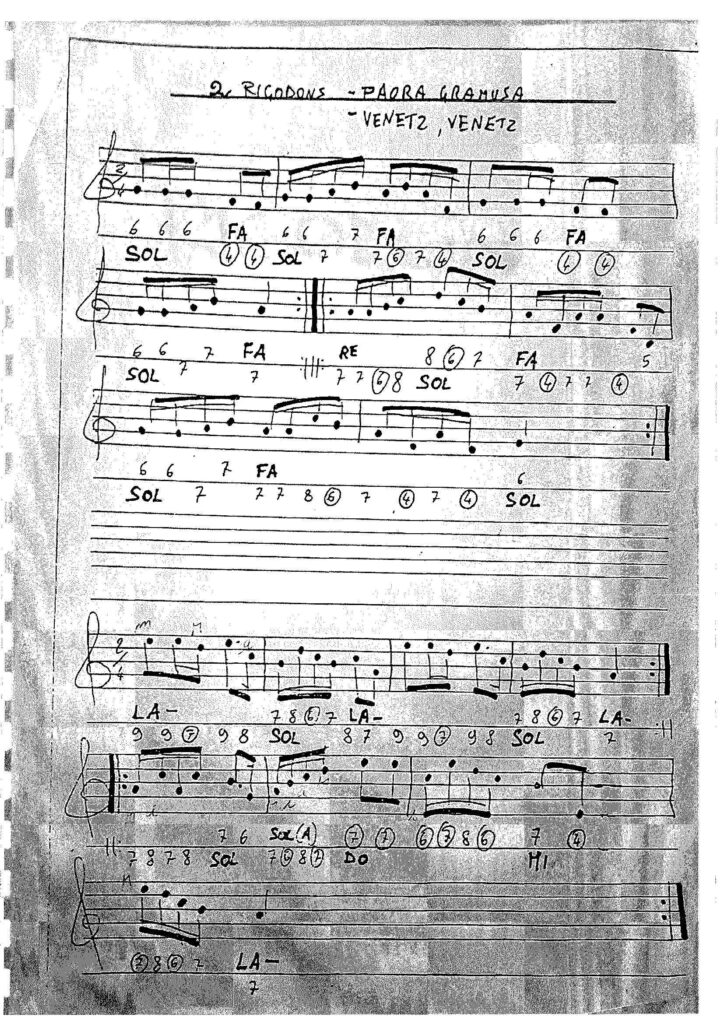 2 RIGODONS - PAORA GRAMUSA
- VENETZ, VENETZ
2
4
6 6 6 FA 6 6 7 FA 6 6 6 FA
SOL ④ ④ SOL 7 7 ⑥ 7 ④ SOL ④ ④
6 6 7 FA RE 8 ⑥ 7 FA 5
SOL 7 7 7 7 ⑥ 8 SOL 7 ④ 7 7 ④
6 6 7 FA 6
SOL 7 7 7 8 ⑥ 7 ④ 7 ④ SOL
m
2
4
LA- 7 8 ⑥ 7 LA- 7 8 ⑥ 7 LA-
9 9 ⑦ 9 8 SOL 8 7 9 9 ⑦ 9 8 SOL 7
7 6 SOL(A) ⑦ ⑦ ⑥ ⑦ 8 ⑥ 7 ④
7 8 7 8 SOL 7 ⑥ 8 ⑦ DO MI
⑦ 8 ⑥ 7 LA-
7